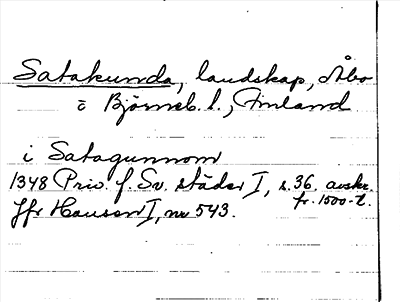 Satakunda, landskap, Åbo
o Björneb. l., Finland
i Satagunnom
1348 Priv. f. Sv. städer I, s. 36. avskr. fr. 1500-t.
Jfr Hausen I, nr 543.